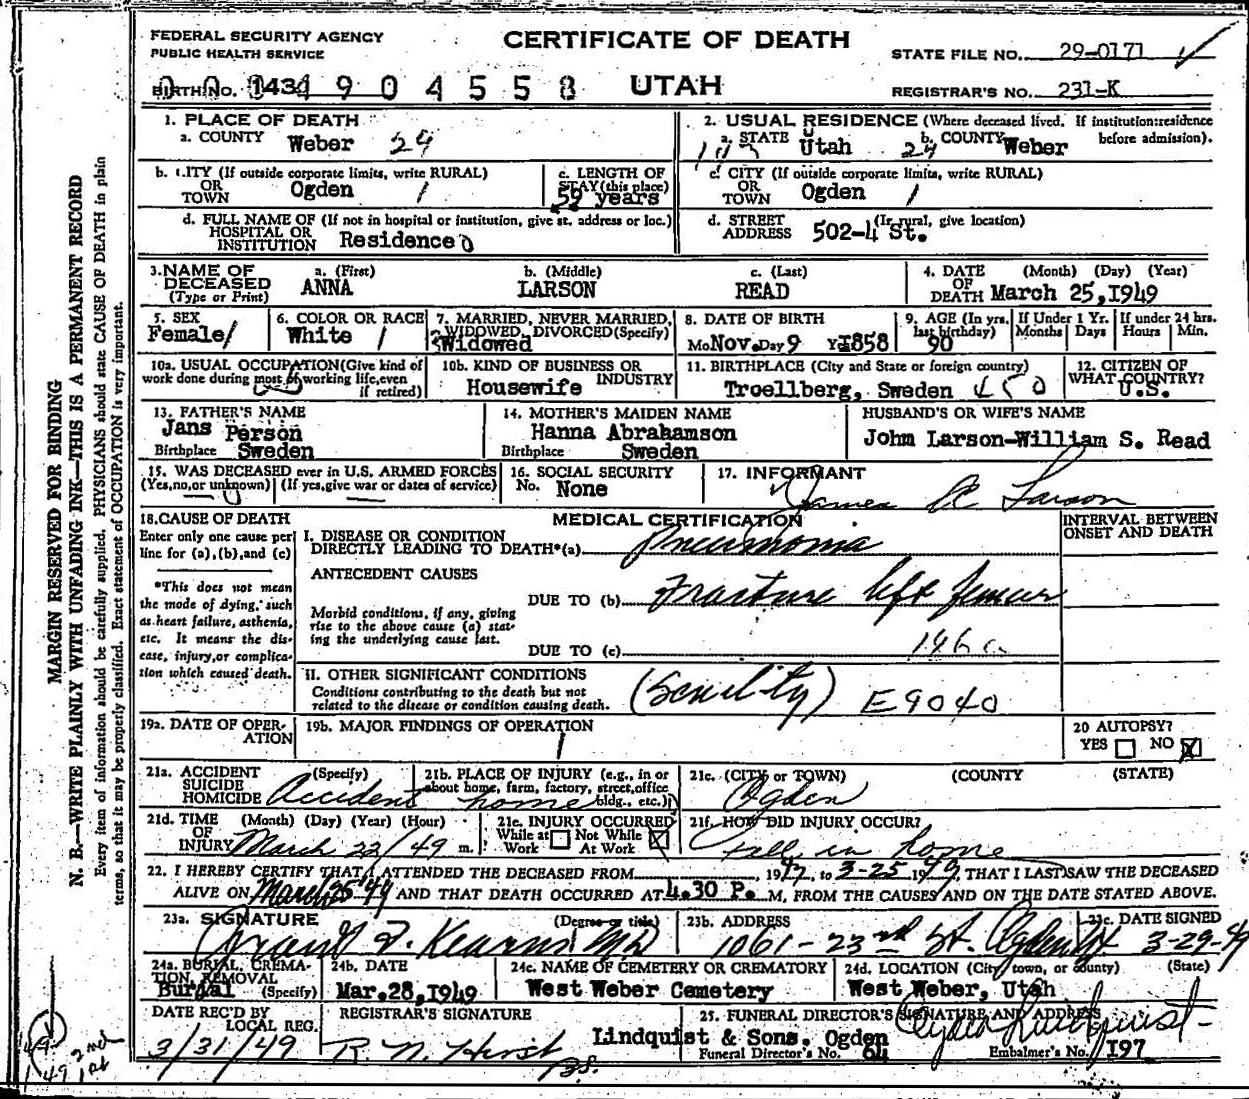 FEDERAL SECURITY AGENCY
PUBLIC HEALTH SERVICE
CERTIFICATE OF DEATH
UTAH
STATE FILE NO. 29-0171
REGISTRAR'S NO. 231-K
BIRTH NO. 143
4904558
1. PLACE OF DEATH
a. COUNTY Weber 29
2. USUAL RESIDENCE (Where deceased lived. If institution:residence before admission).
a. STATE Utah 29 b. COUNTY Weber
b. CITY (If outside corporate limits, write RURAL)
OR TOWN Ogden 1
c. LENGTH OF STAY (this place)
59 years
c. CITY (If outside corporate limits, write RURAL)
OR TOWN Ogden 1
d. FULL NAME OF (If not in hospital or institution, give st. address or loc.)
HOSPITAL OR INSTITUTION Residence 0
d. STREET ADDRESS (If rural, give location)
502-4 St.
3. NAME OF DECEASED (Type or Print)
a. (First) b. (Middle) c. (Last)
ANNA LARSON READ
4. DATE OF DEATH (Month) (Day) (Year)
March 25, 1949
5. SEX
Female/
6. COLOR OR RACE
White /
7. MARRIED, NEVER MARRIED, WIDOWED, DIVORCED (Specify)
Widowed
8. DATE OF BIRTH
Mo Nov. Day 9 Y 1858
9. AGE (In yrs. last birthday)
90
If Under 1 Yr. Months Days
If under 24 hrs. Hours Min.
10a. USUAL OCCUPATION (Give kind of work done during most of working life, even if retired)
10b. KIND OF BUSINESS OR INDUSTRY
Housewife
11. BIRTHPLACE (City and State or foreign country)
Troellberg, Sweden 450
12. CITIZEN OF WHAT COUNTRY?
U.S.
13. FATHER'S NAME
Jans Person
Birthplace Sweden
14. MOTHER'S MAIDEN NAME
Hanna Abrahamson
Birthplace Sweden
HUSBAND'S OR WIFE'S NAME
John Larson-William S. Read
15. WAS DECEASED ever in U.S. ARMED FORCES
(Yes,no,or unknown) (If yes, give war or dates of service)
16. SOCIAL SECURITY
No. None
17. INFORMANT
James Larson
18. CAUSE OF DEATH
Enter only one cause per line for (a), (b), and (c)
*This does not mean the mode of dying, such as heart failure, asthenia, etc. It means the disease, injury, or complication which caused death.
MEDICAL CERTIFICATION
INTERVAL BETWEEN ONSET AND DEATH
I. DISEASE OR CONDITION DIRECTLY LEADING TO DEATH*(a) Pneumonia
ANTECEDENT CAUSES
DUE TO (b) Fracture left femur
Morbid conditions, if any, giving rise to the above cause (a) stating the underlying cause last.
DUE TO (c)
II. OTHER SIGNIFICANT CONDITIONS
Conditions contributing to the death but not related to the disease or condition causing death.
(Senility) E9040
19a. DATE OF OPERATION
19b. MAJOR FINDINGS OF OPERATION
20 AUTOPSY?
YES NO X
21a. ACCIDENT SUICIDE HOMICIDE (Specify)
Accident
21b. PLACE OF INJURY (e.g., in or about home, farm, factory, street, office bldg., etc.)
home
21c. (CITY or TOWN) (COUNTY) (STATE)
Ogden
21d. TIME OF INJURY (Month) (Day) (Year) (Hour)
March 22/49 m.
21e. INJURY OCCURRED
While at Work Not While At Work X
21f. HOW DID INJURY OCCUR?
Fall in home
22. I HEREBY CERTIFY THAT I ATTENDED THE DECEASED FROM 1947, to 3-25 1949, THAT I LAST SAW THE DECEASED
ALIVE ON March 25 '49 AND THAT DEATH OCCURRED AT 4.30 P. M, FROM THE CAUSES AND ON THE DATE STATED ABOVE.
23a. SIGNATURE (Degree or title)
Kearns M.D.
23b. ADDRESS
1061-23rd St. Ogden Ut
23c. DATE SIGNED
3-29-49
24a. BURIAL, CREMATION, REMOVAL (Specify)
Burial
24b. DATE
Mar.28,1949
24c. NAME OF CEMETERY OR CREMATORY
West Weber Cemetery
24d. LOCATION (City, town, or county) (State)
West Weber, Utah
DATE REC'D BY LOCAL REG.
3/31/49
REGISTRAR'S SIGNATURE
R. N. Hirst
25. FUNERAL DIRECTOR'S SIGNATURE AND ADDRESS
Lindquist & Sons. Ogden
Funeral Director's No. 64
Embalmer's No. 197
MARGIN RESERVED FOR BINDING
N. B.—WRITE PLAINLY WITH UNFADING INK—THIS IS A PERMANENT RECORD
Every item of information should be carefully supplied. PHYSICIANS should state CAUSE OF DEATH in plain
terms, so that it may be properly classified. Exact statement of OCCUPATION is very important.